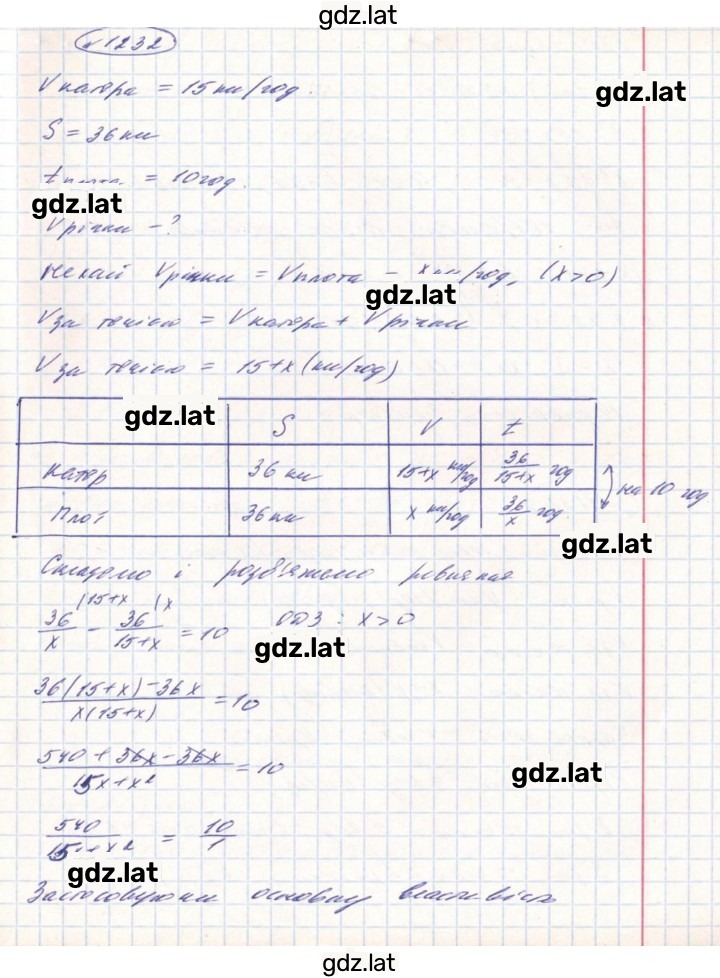 gdz.lat
№1232
Vкатера = 15 км/год.
gdz.lat
S = 36 км
t = 10 год.
gdz.lat
Vрічки - ?
Нехай Vрічки = Vплота - x км/год, (x>0)
gdz.lat
Vза течією = Vкатера + Vрічки
Vза течією = 15+x (км/год)
gdz.lat
S V t
катер 36 км 15+x км/год 36/15+x год
на 10 год
Плот 36 км x км/год 36/x год.
gdz.lat
Складемо і розв'яжемо рівняння
36/x (15+x - 36/15+x (x = 10 ОДЗ: x>0
gdz.lat
36(15+x)-36x/x(15+x) = 10
540+36x-36x/15x+x² = 10
gdz.lat
540/15+x² = 10/1
gdz.lat
Застосовуючи основну властивість
gdz.lat